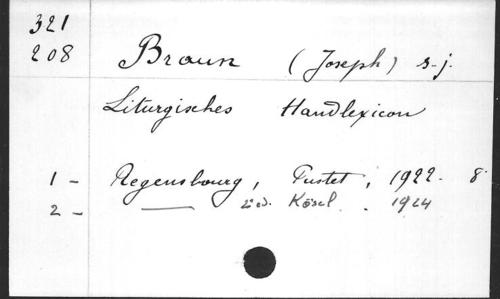 321
208 Braun (Joseph) s.j.
Liturgisches Handlexicon
1 - Regensbourg, Pustet, 1922. 8°
2 - —— 2e ed. Kösel. 1924